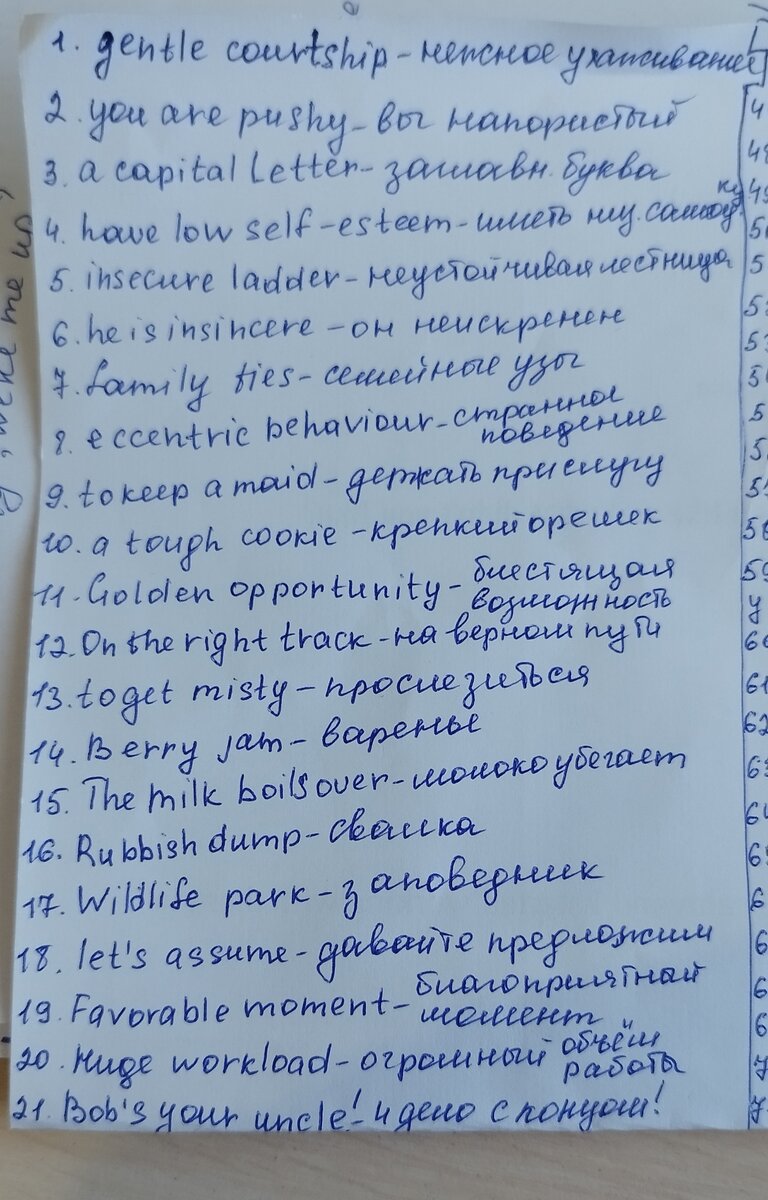 1. gentle courtship - нежное ухаживание
2. you are pushy - вы напористый
3. a capital Letter - заглавн. буква
4. have low self-esteem - иметь низ. самооц.
5. insecure ladder - неустойчивая лестница
6. he is insincere - он неискренен
7. family ties - семейные узы
8. eccentric behaviour - странное
поведение
9. to keep a maid - держать прислугу
10. a tough cookie - крепкий орешек
11. Golden opportunity - блестящая
возможность
12. On the right track - на верном пути
13. to get misty - прослезиться
14. Berry jam - варенье
15. The milk boils over - молоко убегает
16. Rubbish dump - свалка
17. Wildlife park - заповедник
18. let's assume - давайте предложим
19. Favorable moment - благоприятный
момент
20. Huge workload - огромный объём
работы
21. Bob's your uncle! - и дело с концом!